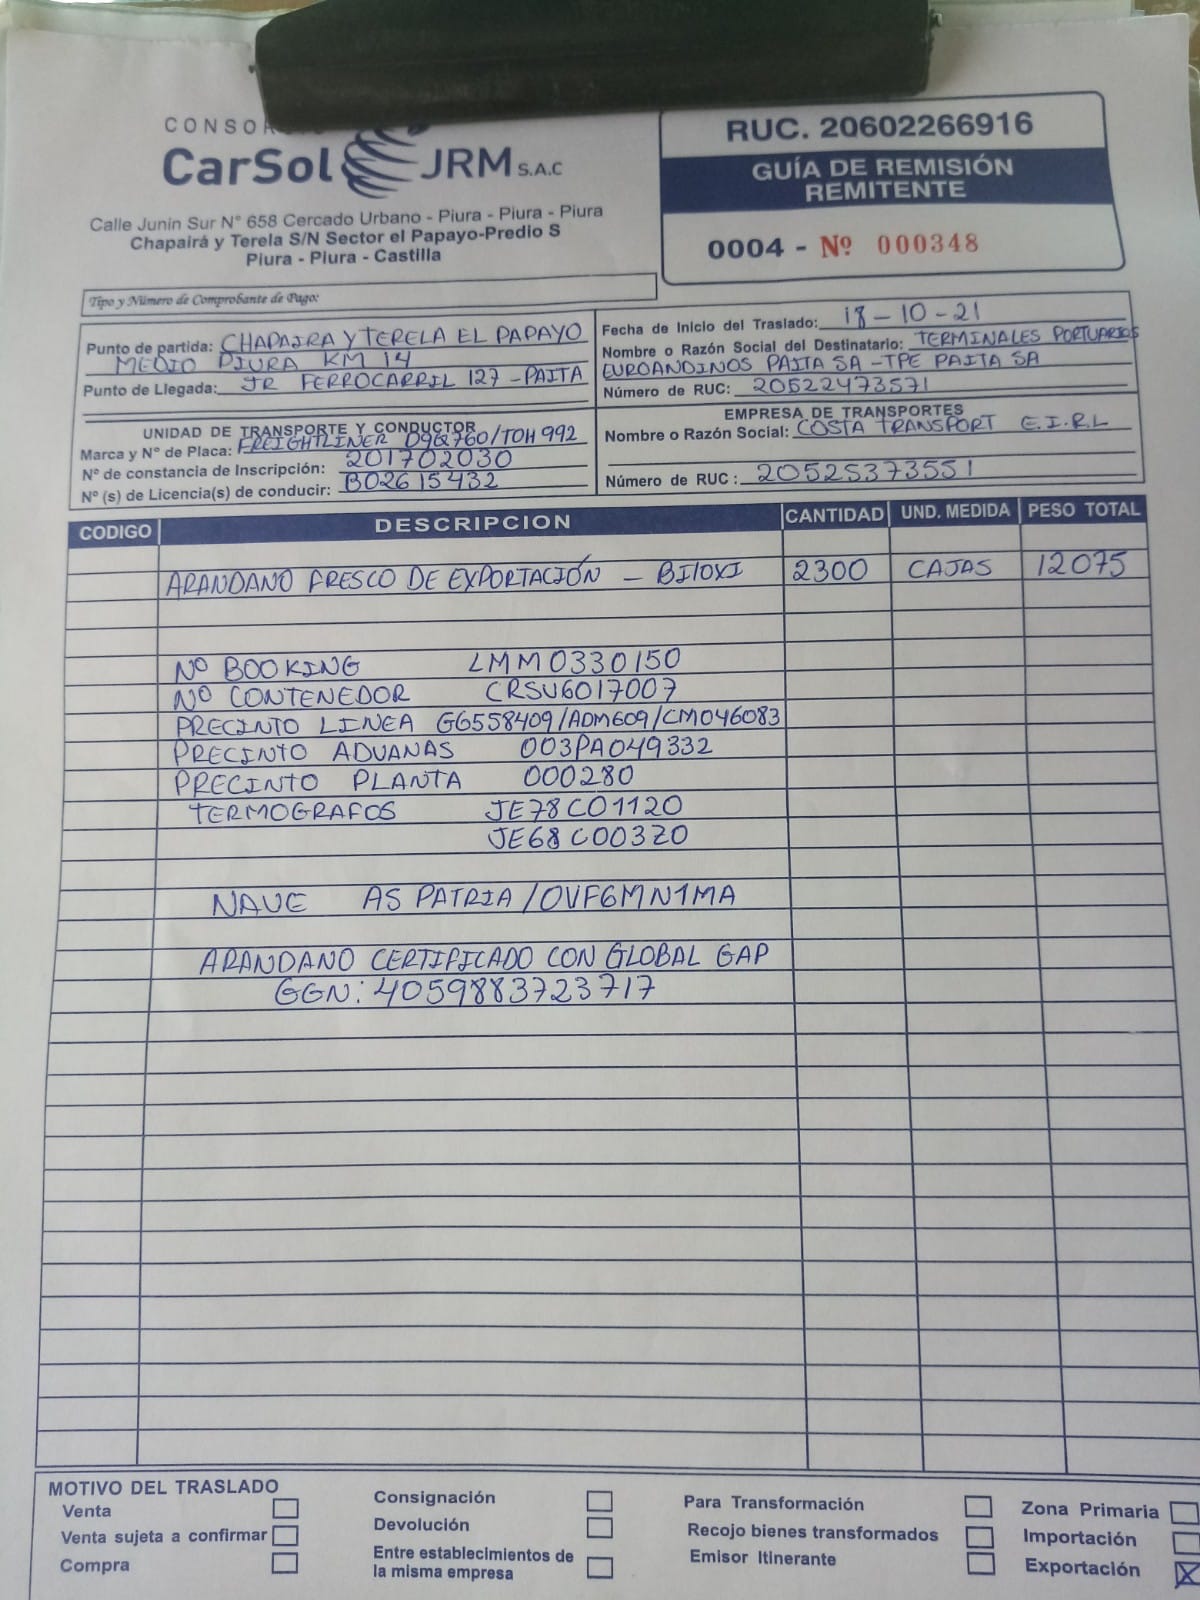 CONSOR
CarSol JRM S.A.C
Calle Junin Sur N° 658 Cercado Urbano - Piura - Piura - Piura
Chapairá y Terela S/N Sector el Papayo-Predio S
Piura - Piura - Castilla
RUC. 20602266916
GUÍA DE REMISIÓN
REMITENTE
0004 - Nº 000348
Tipo y Número de Comprobante de Pago:
Punto de partida: CHAPAIRA Y TERELA EL PAPAYO
MEDIO PIURA KM 14
Punto de Llegada: JR FERROCARRIL 127 - PAITA
Fecha de Inicio del Traslado: 18-10-21
Nombre o Razón Social del Destinatario: TERMINALES PORTUARIOS
EUROANDINOS PAITA SA - TPE PAITA SA
Número de RUC: 20522473571
UNIDAD DE TRANSPORTE Y CONDUCTOR
Marca y N° de Placa: FREIGHTLINER D9G760/TOH992
N° de constancia de Inscripción: 201702030
N° (s) de Licencia(s) de conducir: B02615432
EMPRESA DE TRANSPORTES
Nombre o Razón Social: COSTA TRANSPORT E.I.R.L
Número de RUC: 20525373551
CODIGO DESCRIPCION CANTIDAD UND. MEDIDA PESO TOTAL
ARANDANO FRESCO DE EXPORTACIÓN - BILOXI 2300 CAJAS 12075
Nº BOOKING LMM0330150
Nº CONTENEDOR CRSU6017007
PRECINTO LINEA G6558409/ADM609/CM046083
PRECINTO ADUANAS 003PA049332
PRECINTO PLANTA 000280
TERMOGRAFOS JE78C01120
JE68C003Z0
NAVE AS PATRIA /OVF6MN1MA
ARANDANO CERTIFICADO CON GLOBAL GAP
GGN: 4059883723717
MOTIVO DEL TRASLADO
Venta
Venta sujeta a confirmar
Compra
Consignación
Devolución
Entre establecimientos de
la misma empresa
Para Transformación
Recojo bienes transformados
Emisor Itinerante
Zona Primaria
Importación
Exportación X